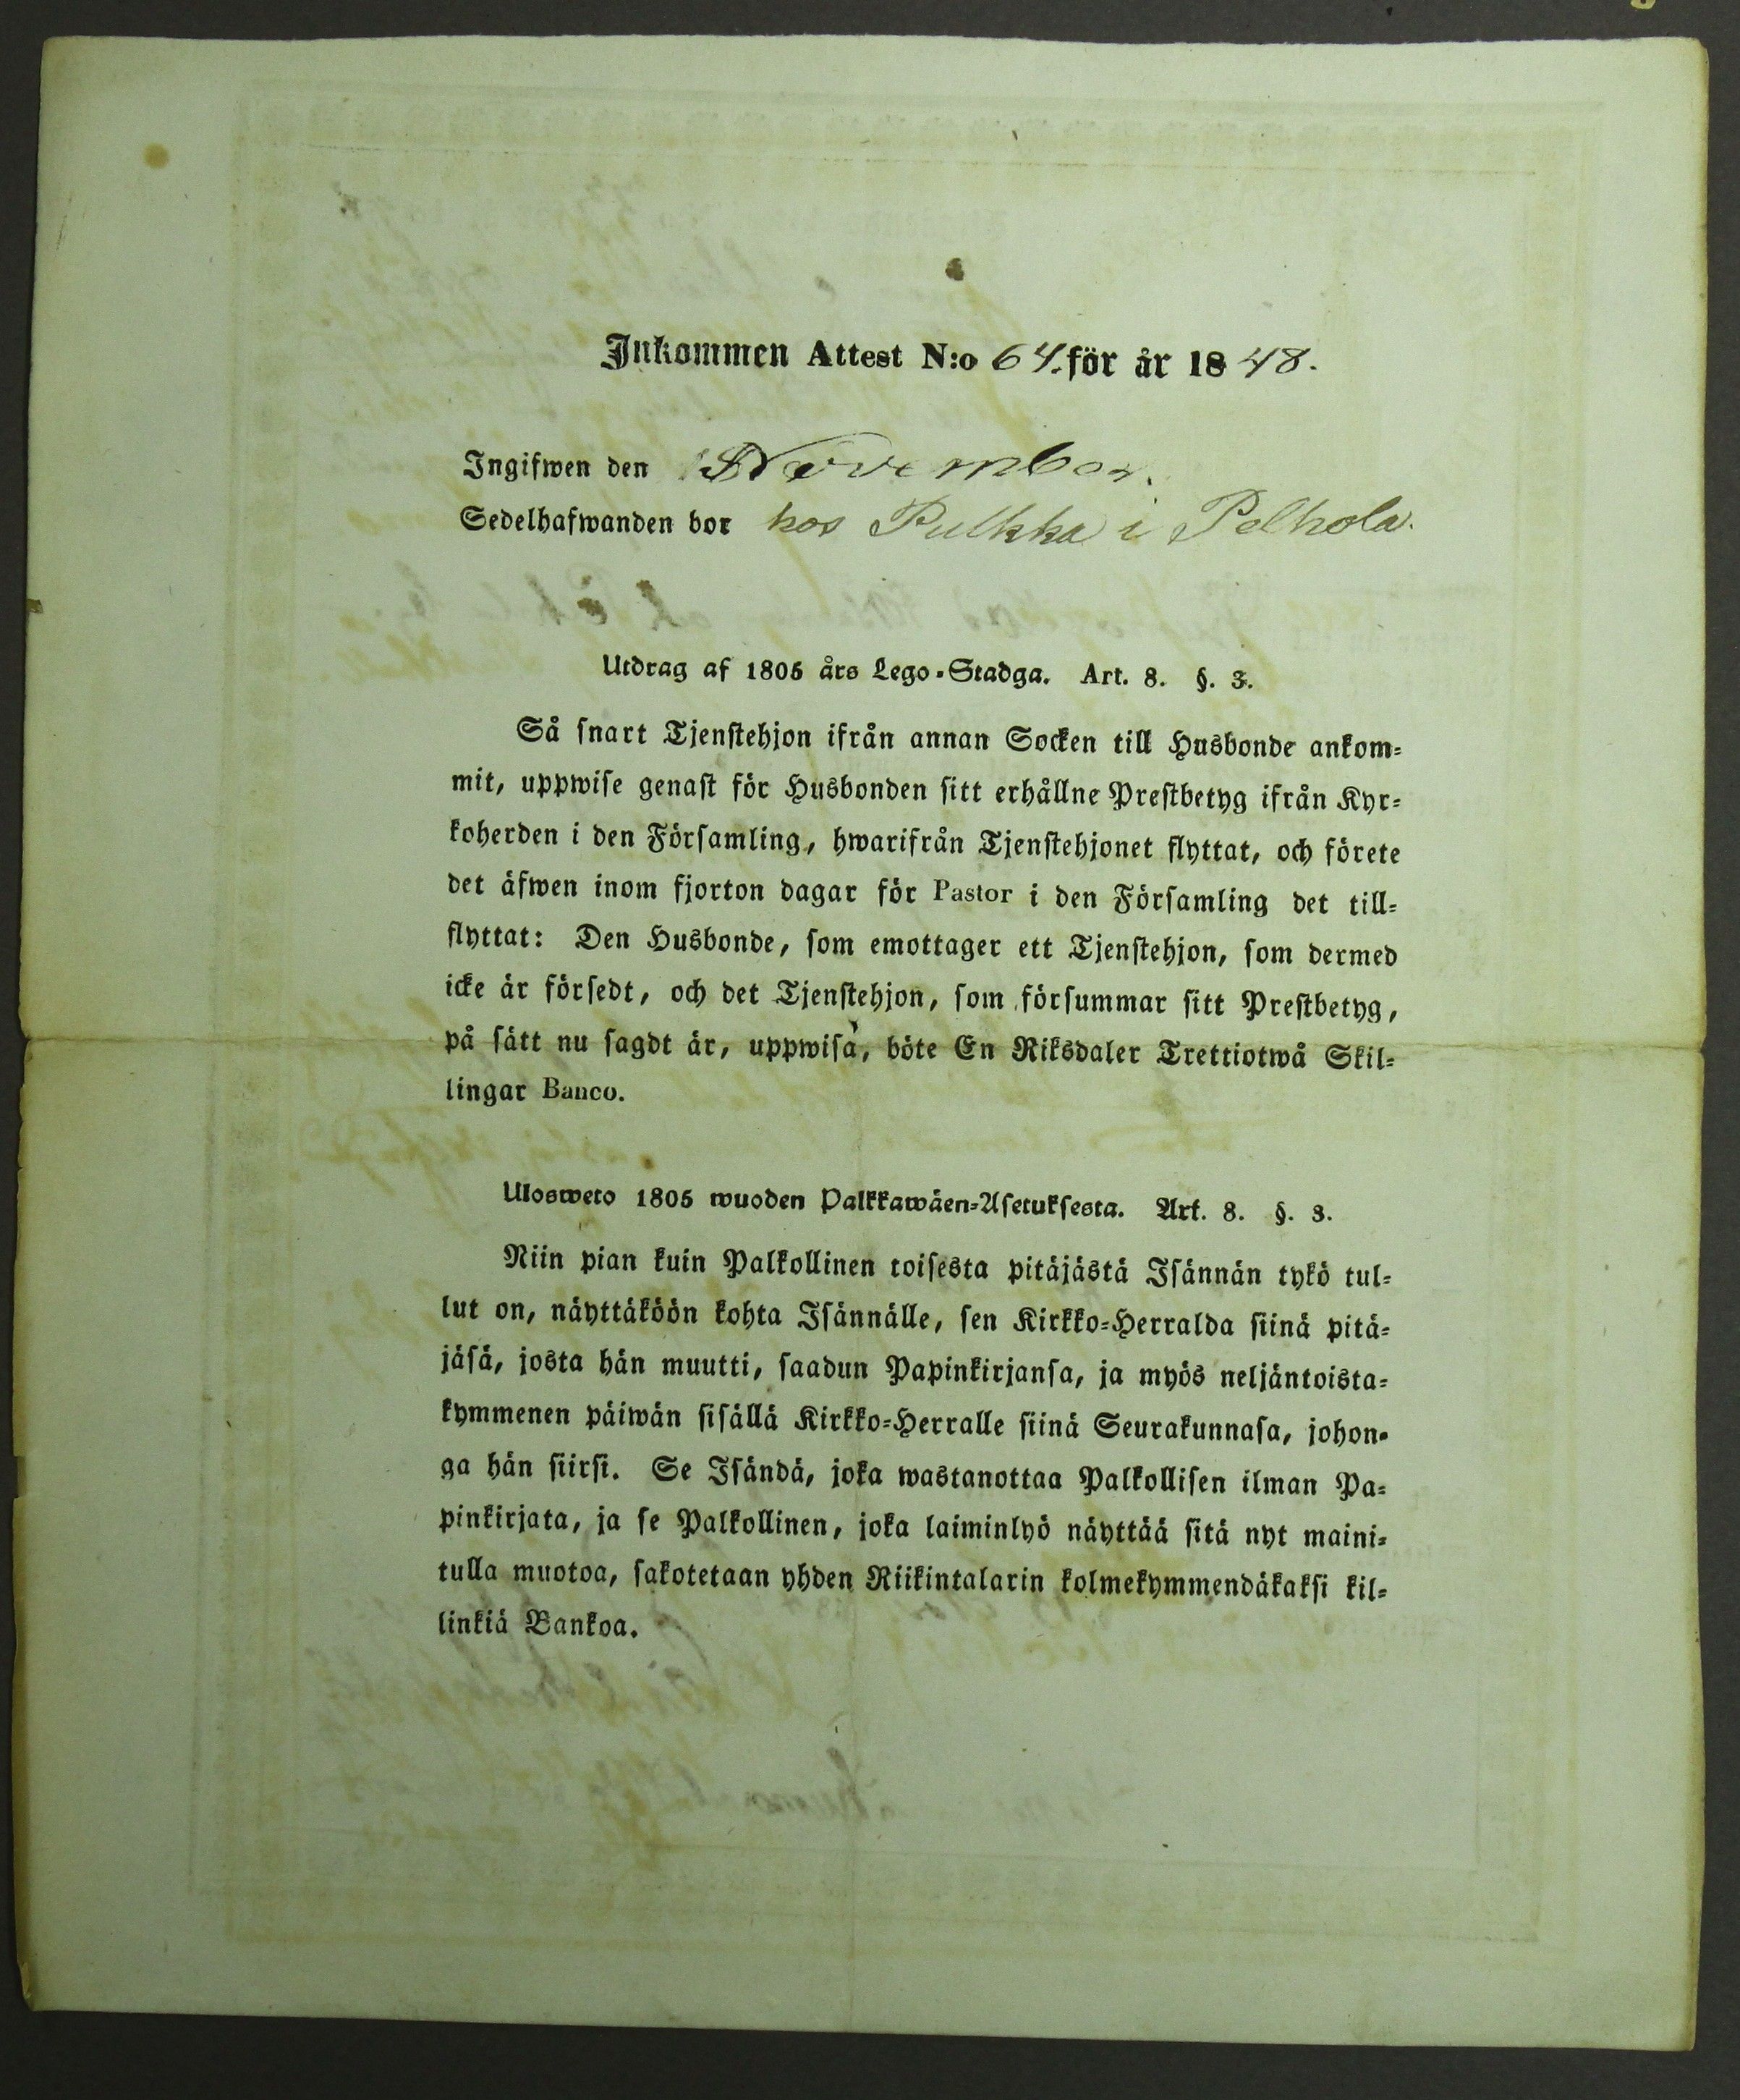 Inkommen Attest N:o 64. för år 1848.
Ingifwen den November.
Sedelhafwanden bor hos Pulkka i Pelkola.
Utdrag af 1805 års Lego-Stadga. Art. 8. §. 3.
Så snart Tjenstehjon ifrån annan Socken till Husbonde ankom-
mit, uppwise genast för Husbonden sitt erhållne Prestbetyg ifrån Kyr-
koherden i den Församling, hwarifrån Tjenstehjonet flyttat, och förete
det äfwen inom fjorton dagar för Pastor i den Församling det till-
flyttat: Den Husbonde, som emottager ett Tjenstehjon, som dermed
icke är försedt, och det Tjenstehjon, som försummar sitt Prestbetyg,
på sätt nu sagdt är, uppwisa, böte En Riksdaler Trettiotwå Skil-
lingar Banco.
Ulosweto 1805 wuoden Palkkawäen-Asetuksesta. Art. 8. §. 3.
Niin pian kuin Palkollinen toisesta pitäjästä Isännän tykö tul-
lut on, näyttäköön kohta Isännälle, sen Kirkko-Herralda siinä pitä-
jäsä, josta hän muutti, saadun Papinkirjansa, ja myös neljäntoista-
kymmenen päiwän sisällä Kirkko-Herralle siinä Seurakunnasa, johon-
ga hän siirsi. Se Isändä, joka wastanottaa Palkollisen ilman Pa-
pinkirjata, ja se Palkollinen, joka laiminlyö näyttää sitä nyt maini-
tulla muotoa, sakotetaan yhden Riikintalarin kolmekymmendäkaksi kil-
linkiä Bankoa.